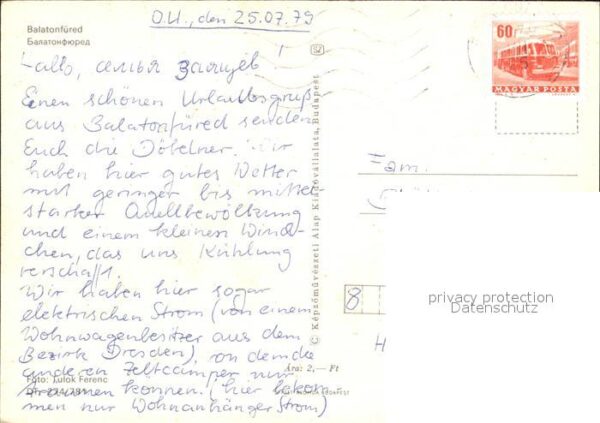 O.U., den 25.07.79
Balatonfüred
Балатонфюред
60f
MAGYAR POSTA
Hallo, !
Einen schönen Urlaubsgruß
aus Balatonfüred senden
Euch die Döbelner. Wir
haben hier gutes Wetter
mit geringer bis mittel-
starker Quellbewölkung
und einem kleinen Wind-
chen, das uns Kühlung
verschafft.
Wir haben hier sogar
elektrischen Strom (von einem
Wohnwagenbesitzer aus dem
Bezirk Dresden), von dem die
anderen Zeltcamper nur
träumen können. (hier bekom-
men nur Wohnanhänger Strom)
Foto: Tulok Ferenc
© Képzőművészeti Alap Kiadóvállalata, Budapest
Fam.
8
H
Ára: 2,— Ft
BUDAPEST
privacy protection
Datenschutz